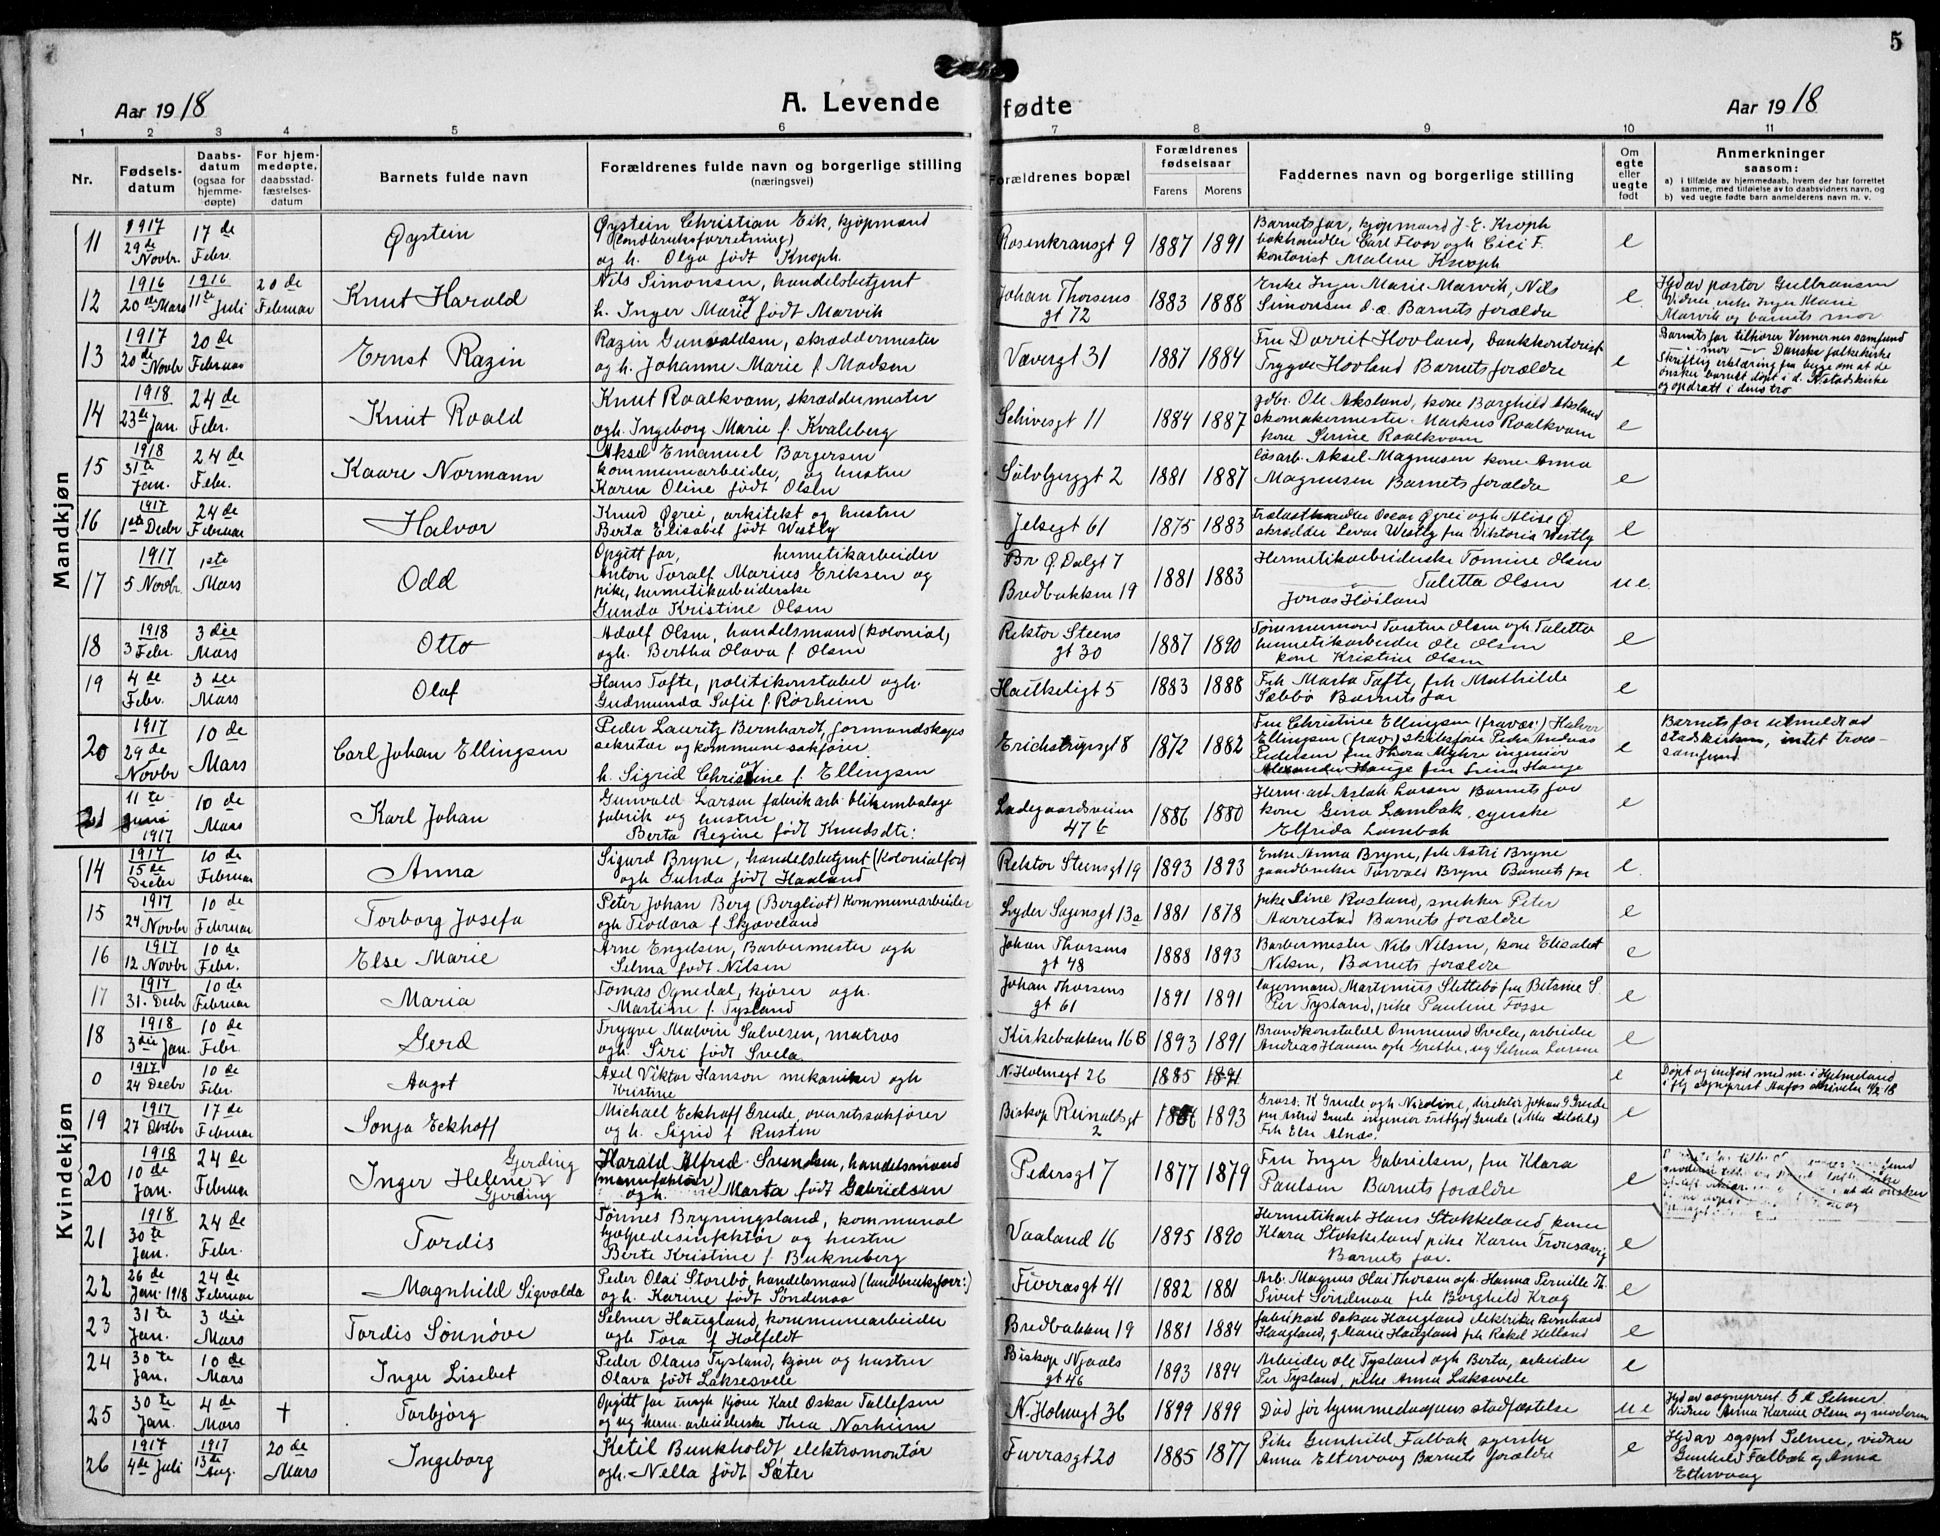 5
Aar 1918
A. Levende
fødte
Aar 1918
1 2 3 4 5 6 7 8 9 10 11
Nr.
Fødsels-
datum
Daabs-
datum
(ogsaa for
hjemme-
døpte)
For hjem-
medøpte,
daabsstad-
fæstelses-
datum
Barnets fulde navn
Forældrenes fulde navn og borgerlige stilling
(næringsvei)
Forældrenes bopæl
Forældrenes
fødselsaar
Farens Morens
Faddernes navn og borgerlige stilling
Om
egte
eller
uegte
født
Anmerkninger
saasom:
a) i tilfælde av hjemmedaab, hvem der har forrettet
samme, med tilføielse av to daabsvidners navn, og
b) ved uegte fødte barn anmelderens navn m. v.
Mandkjøn
11
1917
29de
Novbr.
17de
Febr.
Øystein
Øystein Christian Eik, kjøpmand
(landbruksforretning)
og h. Olga født Knoph.
Rosenkransgt 9
1887 1891
Barnets far, kjøpmand J. E. Knoph
bokhandler Carl Floor ogh Cici F.
kontorist Malene Knoph
e
12
1916
20de Mars
1916
11te Juli
20de
Februar
Knut Harald
Nils Simonsen, handelsbetjent
og
h. Inger Marie født Marvik
Johan Thorsens
gt 72
1883 1888
Enke Inger Marie Marvik, Nils
Simonsen d. æ. Barnets forældre
e
Hjd av pastor Gulbransen
Vidner enke Inger Marie
Marvik og barnets mor
13
1917
20de
Novbr
20de
Februar
Ernst Razin
Razin Gunvaldsen, skræddermester
og h. Johanne Marie f. Madsen
Vævergt 31
1887 1884
Fru Dorrit Hovland, bankkontorist
Trygve Hovland Barnets forældre
e
Barnets far tilhører Vennernes samfund
mor — Danske folkekirke
Skriftlig erklæring fra begge om at de
ønsker barnet døpt i d. N. stadskirke
og opdratt i dens tro
14
1918
23de Jan.
24de
Febr.
Knut Roald
Knut Roalkvam, skræddermester
ogh. Ingeborg Marie f. Kvaleberg
Schivesgt 11
1884 1887
gdbr. Ole Aksland, kone Borghild Aksland
skomakermester Markus Roalkvam
kone Serine Roalkvam
e
15
1918
31te
Jan.
24de
Febr.
Kaare Normann
Aksel Emanuel Borgersen
kommunearbeider, og hustru
Karen Oline født Olsen
Sølvberggt 2
1881 1887
løsarb. Aksel Magnusen kone Anna
Magnusen Barnets forældre
e
16
1917
1ste Decbr
24de
Februar
Halvor
Knud Øgrei, arkitekt og hustru
Berta Elisabet født Westly
Jelsegt 61
1875 1883
Trælasthandler Oscar Øgrei ogh Alise Ø
skrædder Levar Westly fru Viktoria Westly
e
17
1917
5 Novbr.
1ste
Mars
Odd
Opgitt far, hermetikarbeider
Anton Toralf Marius Eriksen og
pike, hermetikarbeiderske
Gunda Kristine Olsen
Br Ø. Dalgt 7
Bredbakken 19
1881 1883
Hermetikarbeiderske Tomine Olsen
Taletta Olsen
Jonas Høiland
ue
18
1918
3 Febr.
3die
Mars
Otto
Adolf Olsen, handelsmand (kolonial)
ogh. Bertha Olava f. Olsen
Rektor Steens
gt 30
1887 1890
Tømmermand Torstein Olsen ogh Taletta
hermetikarbeider Ole Olsen
kone Kristine Olsen
e
19
4de
Febr.
3die
Mars
Olaf
Hans Tofte, politikonstabel ogh.
Gudmunda Sofie f. Rørheim
Haukeligt 5
1883 1888
Frk Marta Tofte, frk Mathilde
Sæbbø Barnets far
e
20
1917
29de
Novbr
10de
Mars
Carl Johan Ellingsen
Peder Lauritz Bernhardt, formandskaps
sekretær og kommunesakfører
og
h. Sigrid Christine f. Ellingsen
Erichstrupsgt 8
1872 1882
Fru Christine Ellingsen (fravær.) Halvor
Ellingsen (frav.) skibsfører Peder Andreas
Pedersen fru Thora Myhre ingeniør
Alexander Hauge fru Signa Hauge
e
Barnets far utmeldt av
stadskirken, intet tros-
samfund
21
11te
Juni
1917
10de
Mars
Karl Johan
Gunvald Larsen fabrikarb. blikemballage
fabrik og hustru
Berta Regine født Knudsdtr:
Ladegaardsveien
47b
1886 1880
Herm. arb Aslak Larsen Barnets far
kone Gina Lambak syerske
Elfrida Lambak
e
Kvindekjøn
14
1917
15de
Decbr
10de
Februar
Anna
Sigurd Bryne, handelsbetjent (Kolonialfor)
ogh Gunda født Haaland
Rektor Steensgt 19
1893 1893
Enke Anna Bryne, frk Astri Bryne
gaardbruker Torvald Bryne Barnets far
e.
15
1917
24 Novbr
10de
Februar
Torborg Josefa
Peter Johan Berg (Bergliot) kommunearbeider
ogh Teodara f Skjæveland
Lyder Sagensgt 13a
1881 1878
pike Line Rosland, snekker Peter
Aarrestad Barnets forældre
e
16
1917
12 Novbr
10de
Febr.
Else Marie
Arne Engelsen, Barbermester ogh
Selma født Nilsen
Johan Thorsens
gt 48
1888 1893
Barbermester Nils Nilsen, kone Elisabet
Nilsen, Barnets forældre
e
17
1917
31. Decbr
10de
Februar
Maria
Tomas Ognedal, kjører ogh.
Martine f. Tysland
Johan Thorsens
gt 61
1891 1891
lagermand Martinius Slettebø fru Betsine S.
Per Tysland, pike Pauline Fosse
e
18
1918
3die Jan.
10de
Febr.
Gerd
Trygve Malvin Salvesen, matros
ogh. Siri født Svela
Kirkebakken 16B
1893 1891
Brandkonstabel Ommund Svela, arbeider
Andreas Hansen ogh Grethe, ug Selma Larsen
e
0
1917
24 Decbr
10de
Febr.
Aagot
Axel Viktor Hanson mekaniker ogh
Kristine
N. Holmegt 26
1885 1891
e
Døpt og indført med nr. i Hjelmeland
19
1917
27 Oktbr
17de
Februar
Sonja Eckhoff
Michael Eckhoff Grude, overretssakfører
og h. Sigrid f Rusten
Biskop Reinaldsgt
2
1886 1893
Gross. K Grude ogh Nicoline, direktør Johan G. Grude
fru Astrid Grude ingeniør Fritjof Grude (ikke tilstede)
Frk Else Alnæs.
e
20
1918
10de
Jan.
24de
Februar
Gjerding
Inger Helene
Gjerding
Harald Alfred Svendsen, handelsmand
(manufaktur)
ogh. Marta født Gabrielsen
Pedersgt 7
1877 1879
Fru Inger Gabrielsen, fru Klara
Paulsen Barnets forældre
e
21
1918
30te
Jan.
24de
Febr.
Tordis
Tønnes Bryningsland, kommunal
hjælpedisinfektør og hustru
Berte Kristine f. Bukneberg
Vaaland 16
1895 1890
Hermetikarb Hans Stokkeland kone
Klara Stokkeland pike Karen Tronsavig
Barnets far.
e
22
26de
Jan. 1918
24de
Februar
Magnhild Sigvalda
Peder Olai Storebø, handelsmand (landbruksforr:)
og h. Karine født Søndenaa
Furrasgt 41
1882 1881
Arb. Magnus Olai Thorsen ogh. Hanna Pernille Th.
Sivert Søndenaa frk Borghild Krag
e
23
31te
Jan.
3die
Mars
Tordis Sønnøve
Selmer Haugland, kommunearbeider
ogh Tora f Holfeldt
Bredbakken 19
1881 1884
fabrikarb Oskar Haugland elektriker Bernhard
Haugland, g Marie Haugland frk Rakel Helland
e
24
30te
Jan.
10de
Mars
Inger Lisebet
Peder Olaus Tysland, kjører og hustru
Olava født Laksesvele
Biskop Njaals
gt 46
1893 1894
Arbeider Ole Tysland ogh Berta, arbeider
Per Tysland, pike Anna Laksvele
e
25
30te
Jan.
4de
Mars
+
Torbjørg
Opgitt far ungk kjører Karl Oskar Tollefsen
og ug herm. arbeiderske Thea Norheim
N. Holmegt 36
1899 1899
Død før hjemmedaapens stadfæstelse
ue
Hjd av sogneprest. E. A. Selmer.
Vidner Anna Karine Olsen og moderen
26
1917
4de Juli
1917
13de
Aug.
20de
Mars
Ingeborg
Ketil Bunkholdt elektromontør
ogh. Nella født Sæter
Furrasgt 20
1885 1877
Pike Gunhild Falbak syerske
Anna Eltervaag Barnets forældre
e
Hjd av sgprst Selmer, vidner
Gunhild Falbak og Anna
Eltervaag